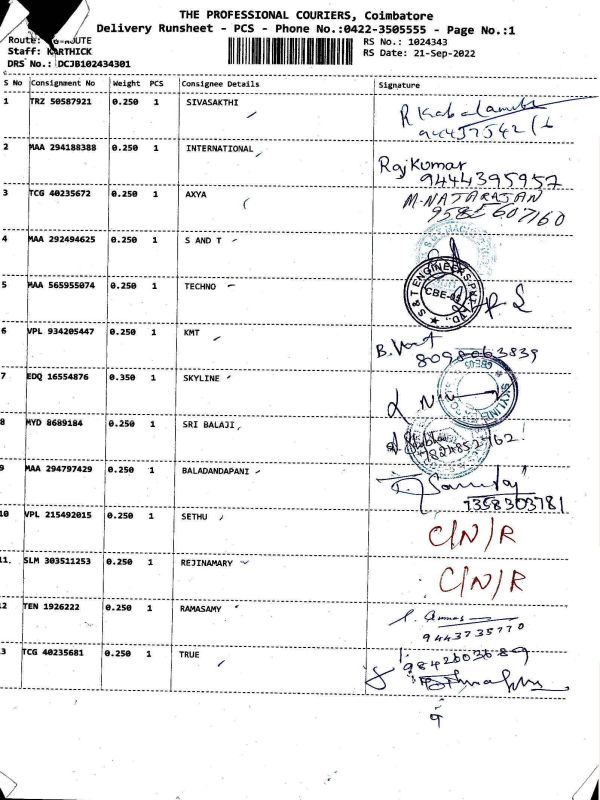 THE PROFESSIONAL COURIERS, Coimbatore
Delivery Runsheet - PCS - Phone No.:0422-3505555 - Page No.:1
Route:
Staff: KARTHICK
DRS No.: DCJB102434301
RS No.: 1024343
RS Date: 21-Sep-2022
S No Consignment No Weight PCS Consignee Details Signature
1 TRZ 50587921 0.250 1 SIVASAKTHI
2 MAA 294188388 0.250 1 INTERNATIONAL Rajkumar
9444395957
3 TCG 40235672 0.250 1 AXYA M.NATARAJAN
9585607160
4 MAA 292494625 0.250 1 S AND T
S & T ENGINEERS PVT. LTD.,
5 MAA 565955074 0.250 1 TECHNO
6 VPL 934205447 0.250 1 KMT
8098063839
7 EDQ 16554876 0.350 1 SKYLINE
SKYLINE
8 MYD 8689184 0.250 1 SRI BALAJI
9 MAA 294797429 0.250 1 BALADANDAPANI
9358303781
10 VPL 215492015 0.250 1 SETHU C/N/R
11. SLM 303511253 0.250 1 REJINAMARY C/N/R
12 TEN 1926222 0.250 1 RAMASAMY
9443735770
3 TCG 40235681 0.250 1 TRUE
9842603689